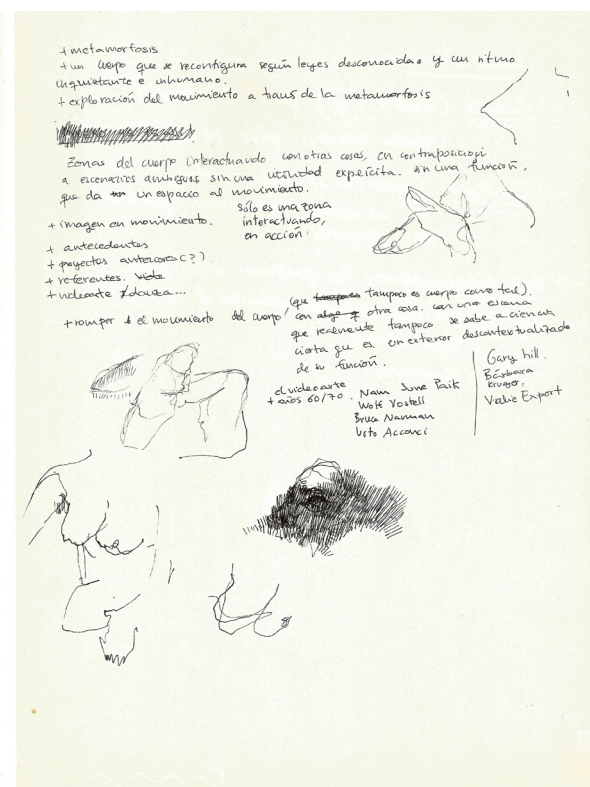 + metamorfosis
+ un cuerpo que se reconfigura según leyes desconocidas y un ritmo
inquietante e inhumano.
+ exploración del movimiento a través de la metamorfosis
Zonas del cuerpo interactuando con otras cosas, en contraposición
a escenarios ambiguos sin una utilidad explícita. sin una función.
que da un espacio al movimiento.
sólo es una zona
interactuando,
en acción.
+ imagen en movimiento.
+ antecedentes
+ proyectos anteriores (?)
+ referentes.
+ videoarte / danza...
(que tampoco es cuerpo como tal).
+ romper el movimiento del cuerpo con otra cosa. con una escena
que realmente tampoco se sabe a ciencia
cierta que es. un exterior descontextualizado
de su función.
el videoarte
+ años 60/70. Nam June Paik
Wolf Vostell
Bruce Nauman
Vito Acconci
Gary hill.
Bárbara
kruger,
Valie Export